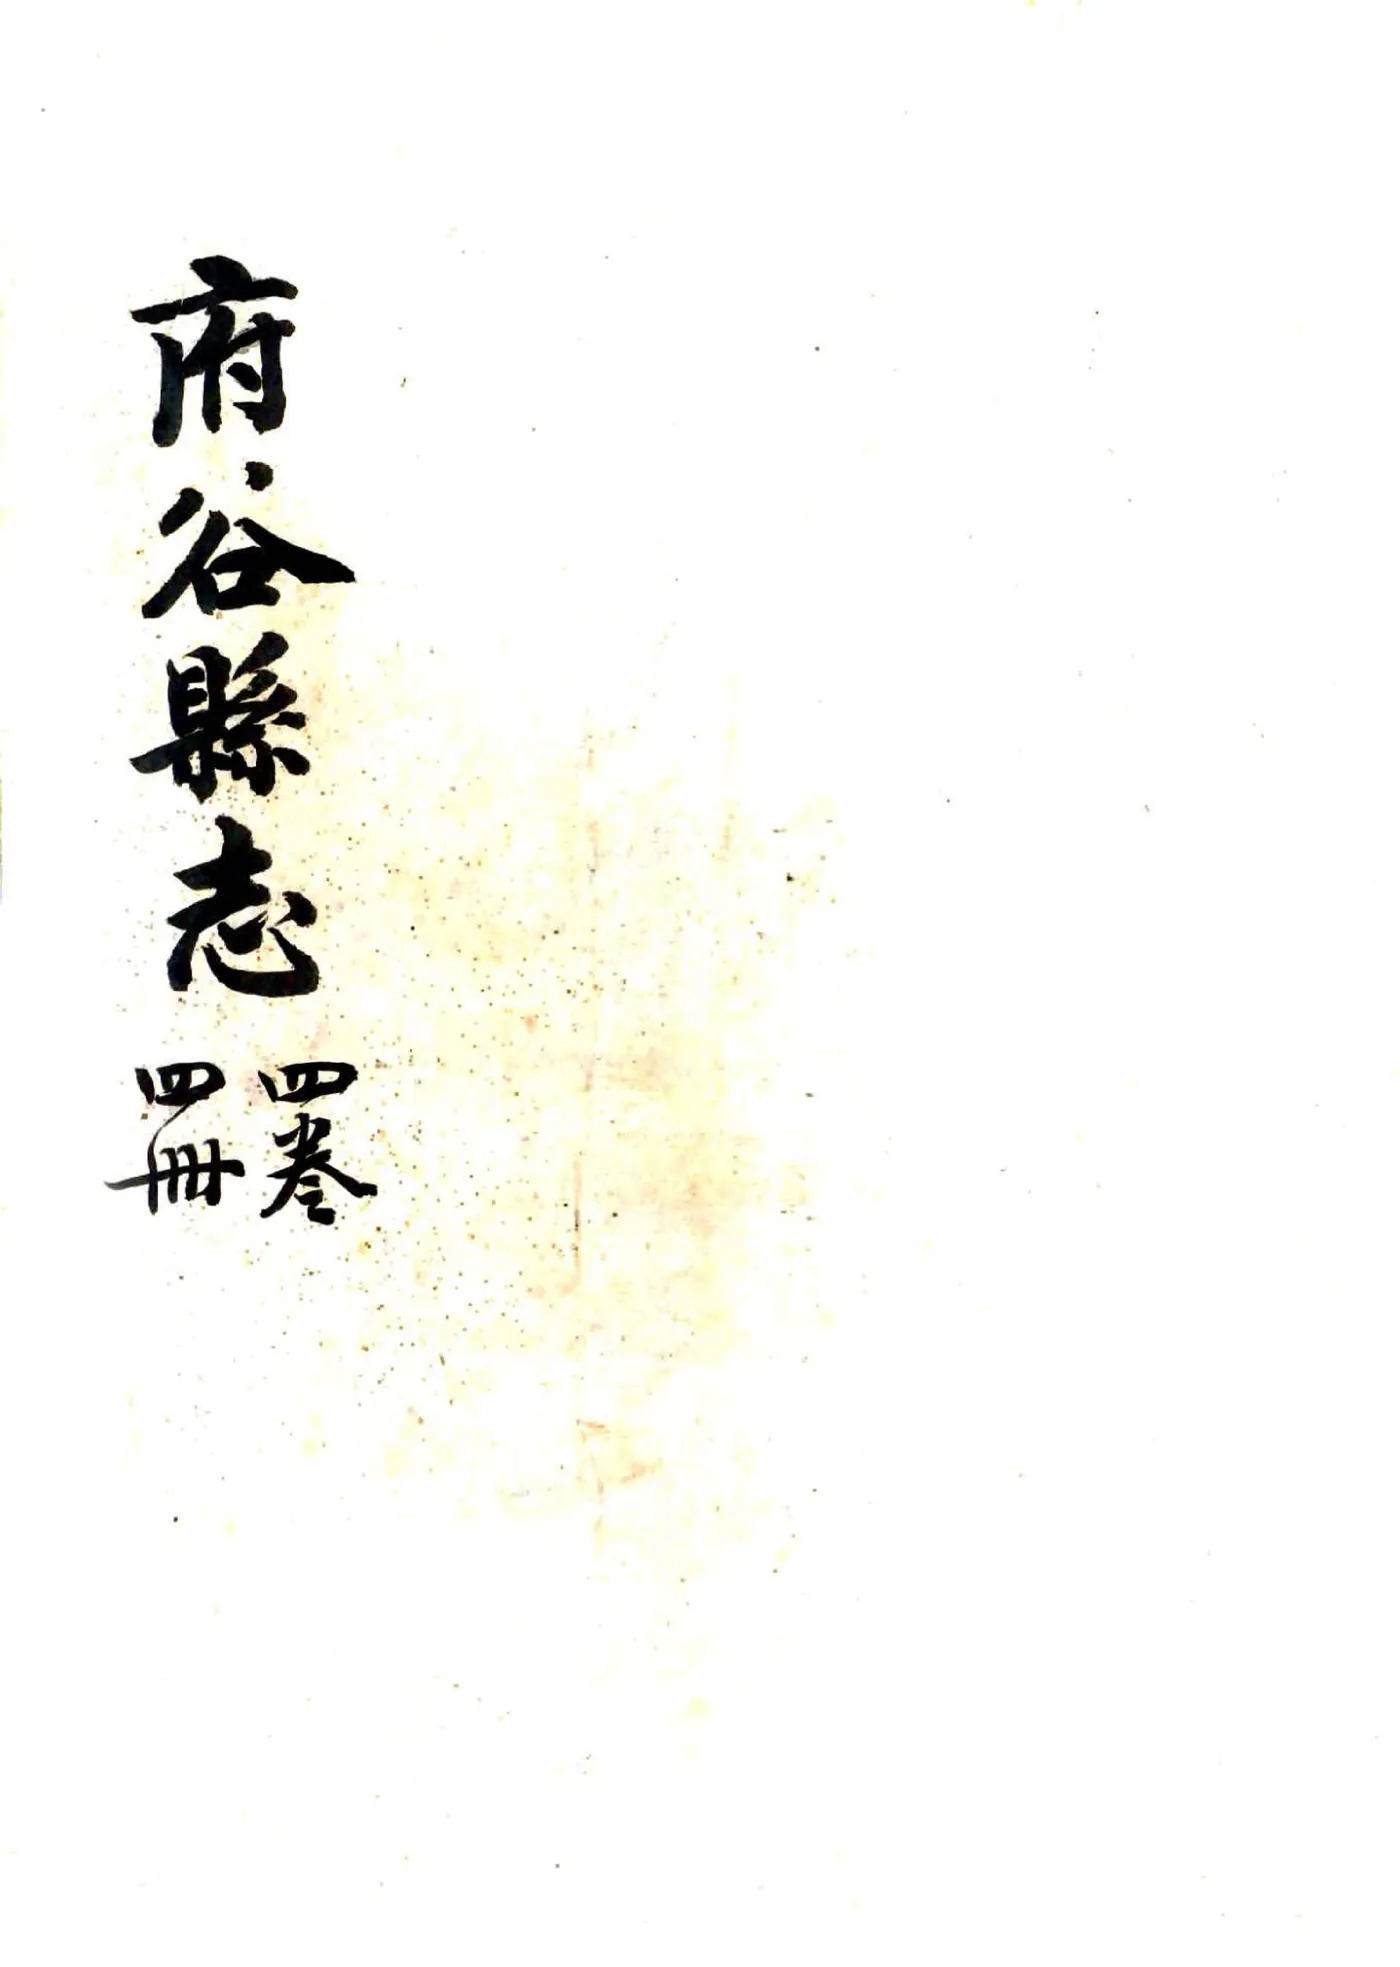 府谷縣志
四卷
四冊